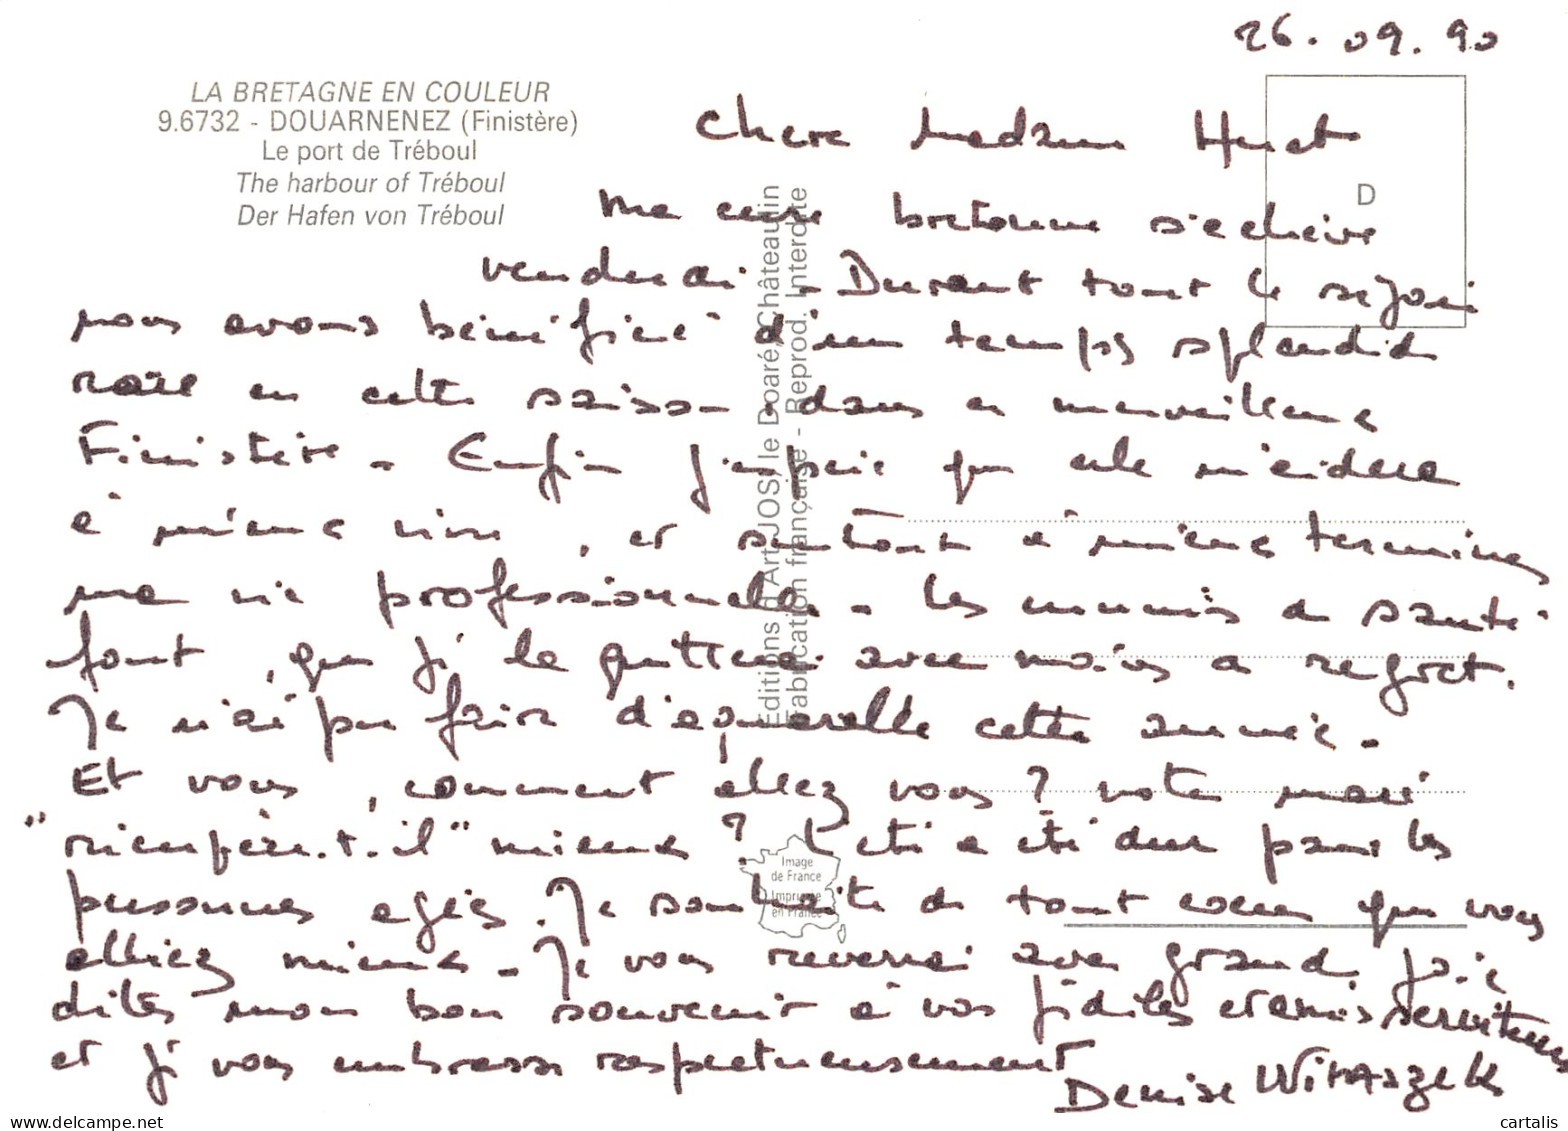 26.09.90
LA BRETAGNE EN COULEUR
9.6732 - DOUARNENEZ (Finistère)
Le port de Tréboul
The harbour of Tréboul
Der Hafen von Tréboul
D
Editions d'Art JOS le Doaré Châteaulin
Fabrication française - Reprod. Interdite
Image
de France
Imprimée
en France
Chère Madame Huet
Ma cure bretonne s'achève
vendredi. Durant tout le séjour
nous avons bénéficié d'un temps splendide
rare en cette saison dans ce merveilleux
Finistère. Enfin j'espère que cela m'aidera
à mieux vivre, et surtout à mieux terminer
ma vie professionnelle. Les ennuis de santé
font, que je la quitterai avec moins de regret.
Je n'ai pu faire d'aquarelle cette année.
Et vous, comment allez vous ? votre mari
"récupère.t.il" mieux ? L'été a été dur pour les
personnes agées. Je souhaite de tout coeur que vous
alliez mieux. Je vous reverrai avec grand joie
dites mon bon souvenir à vos fidèles et amis serviteurs
et je vous embrasse respectueusement
Denise Witaszek
cartalis
www.delcampe.net